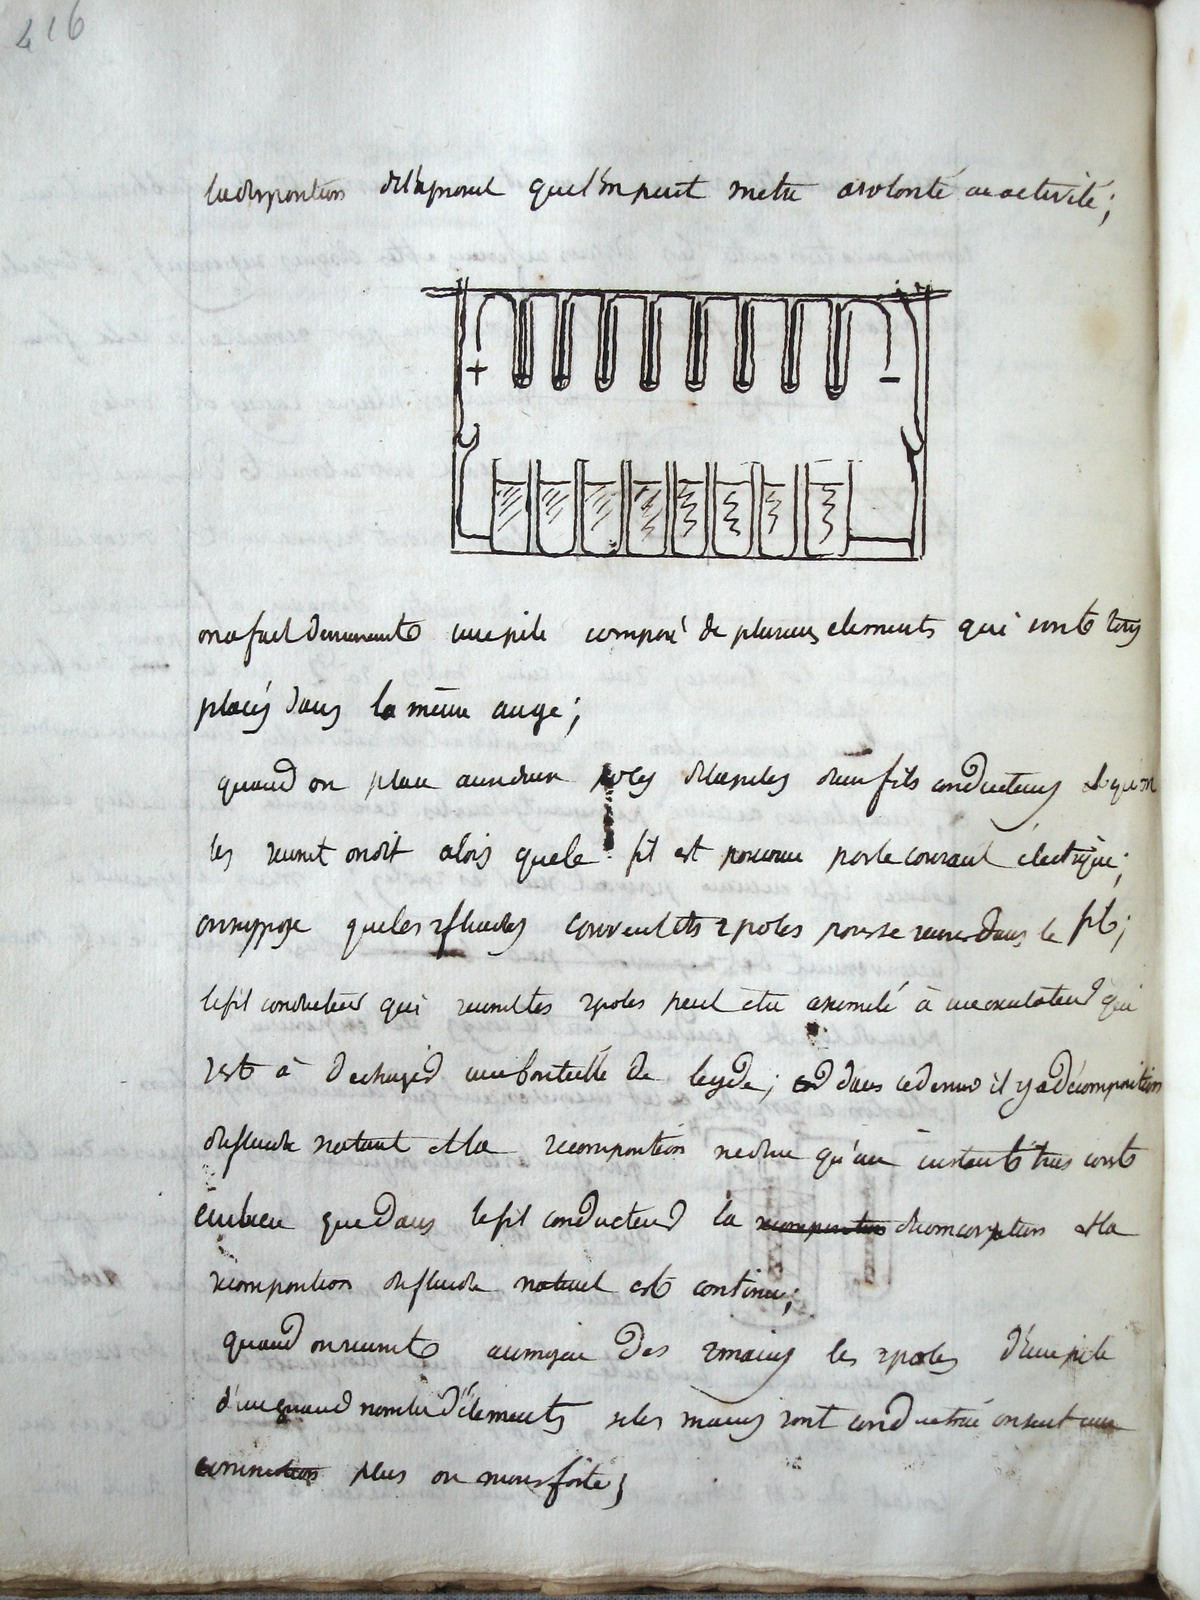 416
la disposition de l'apareil quel'on peut metre a volonté en activité;
+ −
on a fait dememe une pile composé de plusieurs elements qui sont tous
placés dans la même auge;
quand on place aux deux poles des piles deux fils conducteurs et qu'on
les reunit on dit alors que le fil est parcouru par le courant électrique;
on suppose que les 2 fluides couvrent les 2 poles pour se reunir dans le fil;
le fil conducteur qui reunit les 2 poles peut etre assimilé à un excitateur qui
sert à decharger une bouteille de leyde; dans ce dernier il y a décomposition
du fluide naturel et la recomposition ne dure qu'un instant tres court
au lieu que dans le fil conducteur la recomposition décomposition et la
recomposition du fluide naturel est continu;
quand on reunit au moyen des 2 mains les 2 poles d'une pile
d'un grand nombre d'élements si les mains sont conductrice on sent une
commotion plus ou moins forte;